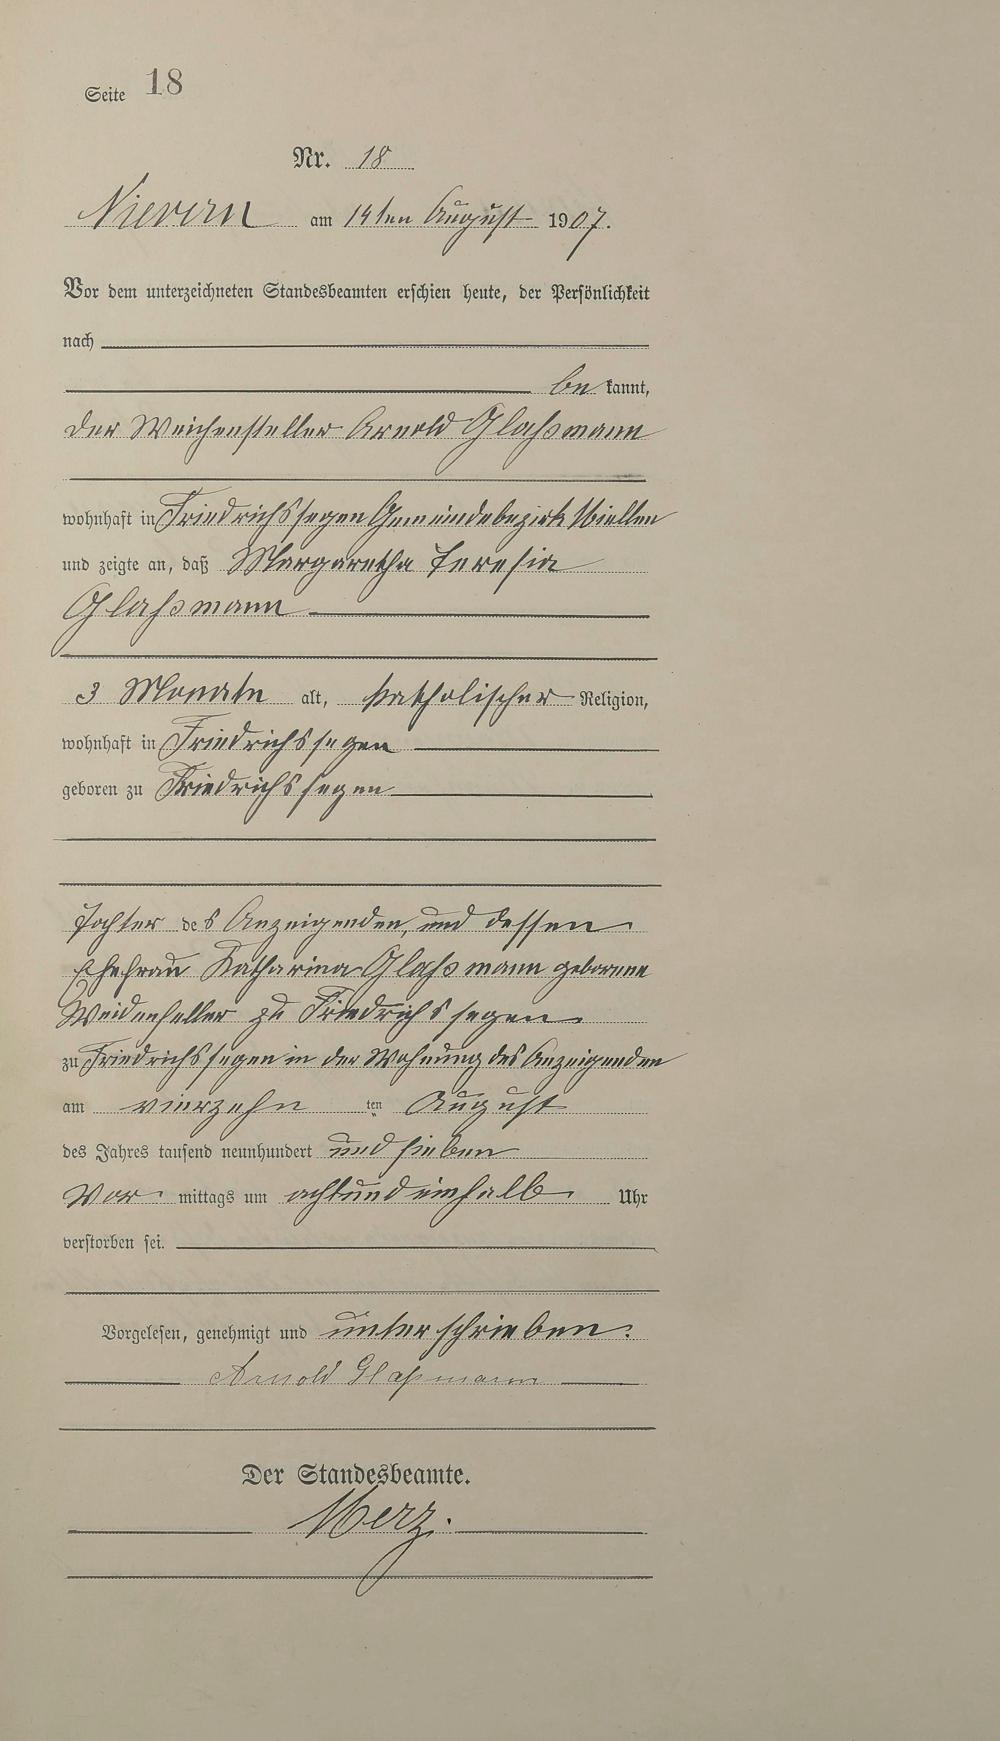 Seite 18
Nr. 18
Nievern am 14ten August 1907.
Vor dem unterzeichneten Standesbeamten erschien heute, der Persönlichkeit
nach
be kannt,
der Weichensteller Arnold Glaßmann
wohnhaft in Friedrichssegen Gemeindebezirk Miellen
und zeigte an, daß Margaretha Teresia
Glaßmann
3 Monate alt, katholischer Religion,
wohnhaft in Friedrichssegen
geboren zu Friedrichssegen
Tochter des Anzeigenden, und dessen
Ehefrau Katharina Glaßmann geborene
Weidenfeller zu Friedrichssegen
zu Friedrichssegen in der Wohnung des Anzeigenden
am vierzehn ten August
des Jahres tausend neunhundert und sieben
Vor mittags um achtundeinhalb Uhr
verstorben sei.
Vorgelesen, genehmigt und unterschrieben:
Arnold Glaßmann
Der Standesbeamte.
Merz.